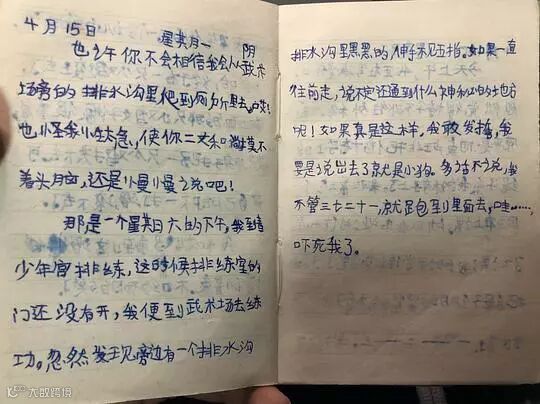 4月15日 星其月一 阴
也许你不会相信我会从武术
场旁的排水沟里爬到厕所里去。哎!
也怪我小性太急,使你二丈和尚摸不
着头脑,还是慢慢说吧!
那是一个星期六的下午,我到
少年宫排练,这时候排练室的
门还没有开,我便到武术场去练
功。忽然发现旁边有一个排水沟
排水沟里黑黑的伸手不见五指。如果一直
往前走,说不定还通到什么神秘的地方
呢!如果真是这样,我敢发誓,我
要是说出去了就是小狗。多话不说,我
不管三七二十一,就跑到里面去,哇……,
吓死我了。
大数跨境